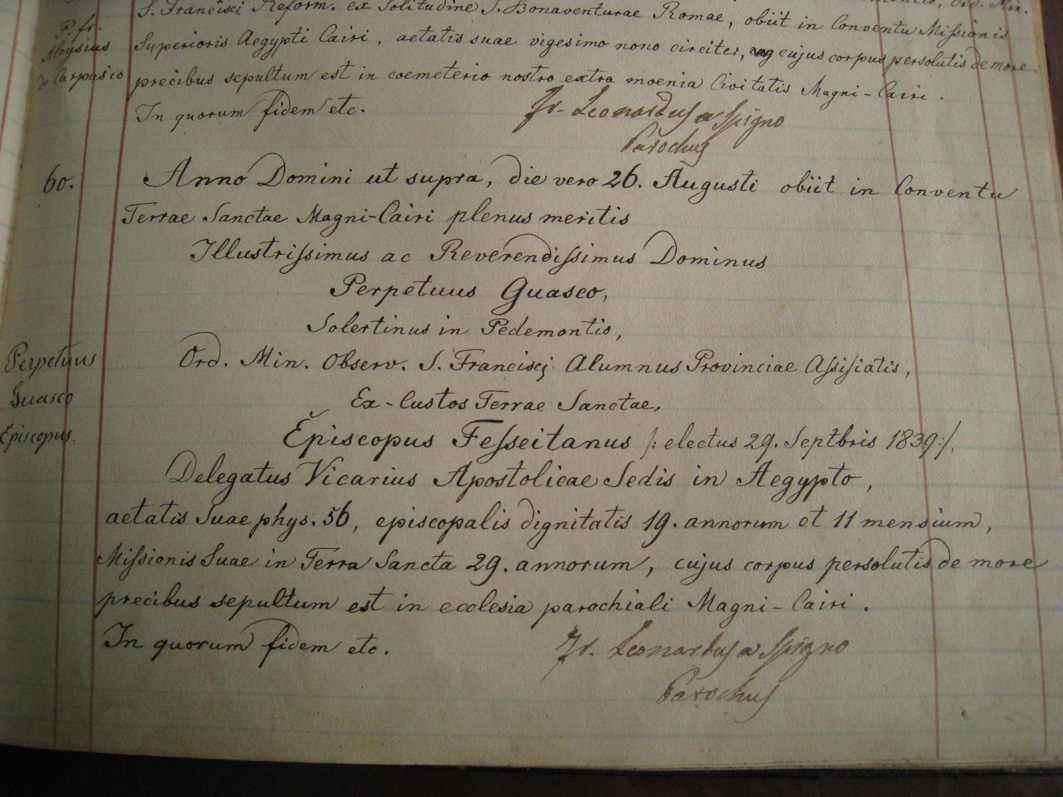 S. Francisci Reform. ex Solitudine S. Bonaventurae Romae, obiit in Conventu Missionis
P. fr.
Aloysius
de Carpasio
Superioris Aegypti Cairi, aetatis suae vigesimo nono circiter, cujus corpus persolutis de more
precibus sepultum est in coemeterio nostro extra moenia Civitatis Magni-Cairi.
In quorum fidem etc.
Fr. Leonardus a Spigno
Parochus
60.
Anno Domini ut supra, die vero 26. Augusti obiit in Conventu
Terrae Sanctae Magni-Cairi plenus meritis
Illustrissimus ac Reverendissimus Dominus
Perpetuus Guasco,
Solertinus in Pedemontis,
Perpetuus
Guasco
Episcopus.
Ord. Min. Observ. S. Francisci Alumnus Provinciae Assisiatis,
Ex-Custos Terrae Sanctae,
Episcopus Fesseitanus /: electus 29. Septbris 1839:/,
Delegatus Vicarius Apostolicae Sedis in Aegypto,
aetatis Suae phys. 56, episcopalis dignitatis 19. annorum et 11 mensium,
Missionis Suae in Terra Sancta 29. annorum, cujus corpus persolutis de more
precibus sepultum est in ecclesia parochiali Magni-Cairi.
In quorum fidem etc.
Fr. Leonardus a Spigno
Parochus